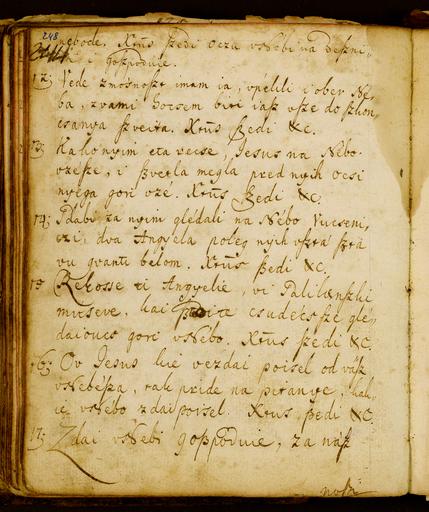 248
ebode. Xtus sedi Ocza vnebi na Desni,
i goszpoduie.
12. Vede znosnoszt imam ia, vpekli i ober Ne,
ba, zvami hocsem biti ias vsze do szkon,
csanya szveita. Xtus sedi &c.
13. Kakonyim eta recse, Jesus na Nebo
vzése, i szvetla megla pred nyih ocsi
nyéga gori vzé. Xtus sedi &c.
14. I dabi za nyim gledali na Nébo Vucseni,
czi, dva Angyela poleg nyih
vu gvanti belom. Xtus sedi &c.
15 Rekosse ti Angyelie, vi Galilánszki
musevé, kai csudécsi glé,
daioucs gori vnébo. Xtus sedi &c.
16. Ov Jesus kie vezdai poisel od vász
vnebésza, tak pride na pitanye, kak,
ie vnébo zdai poisel. Xtus sedi &c.
17. Zdai vnebi goszpoduie, za nász